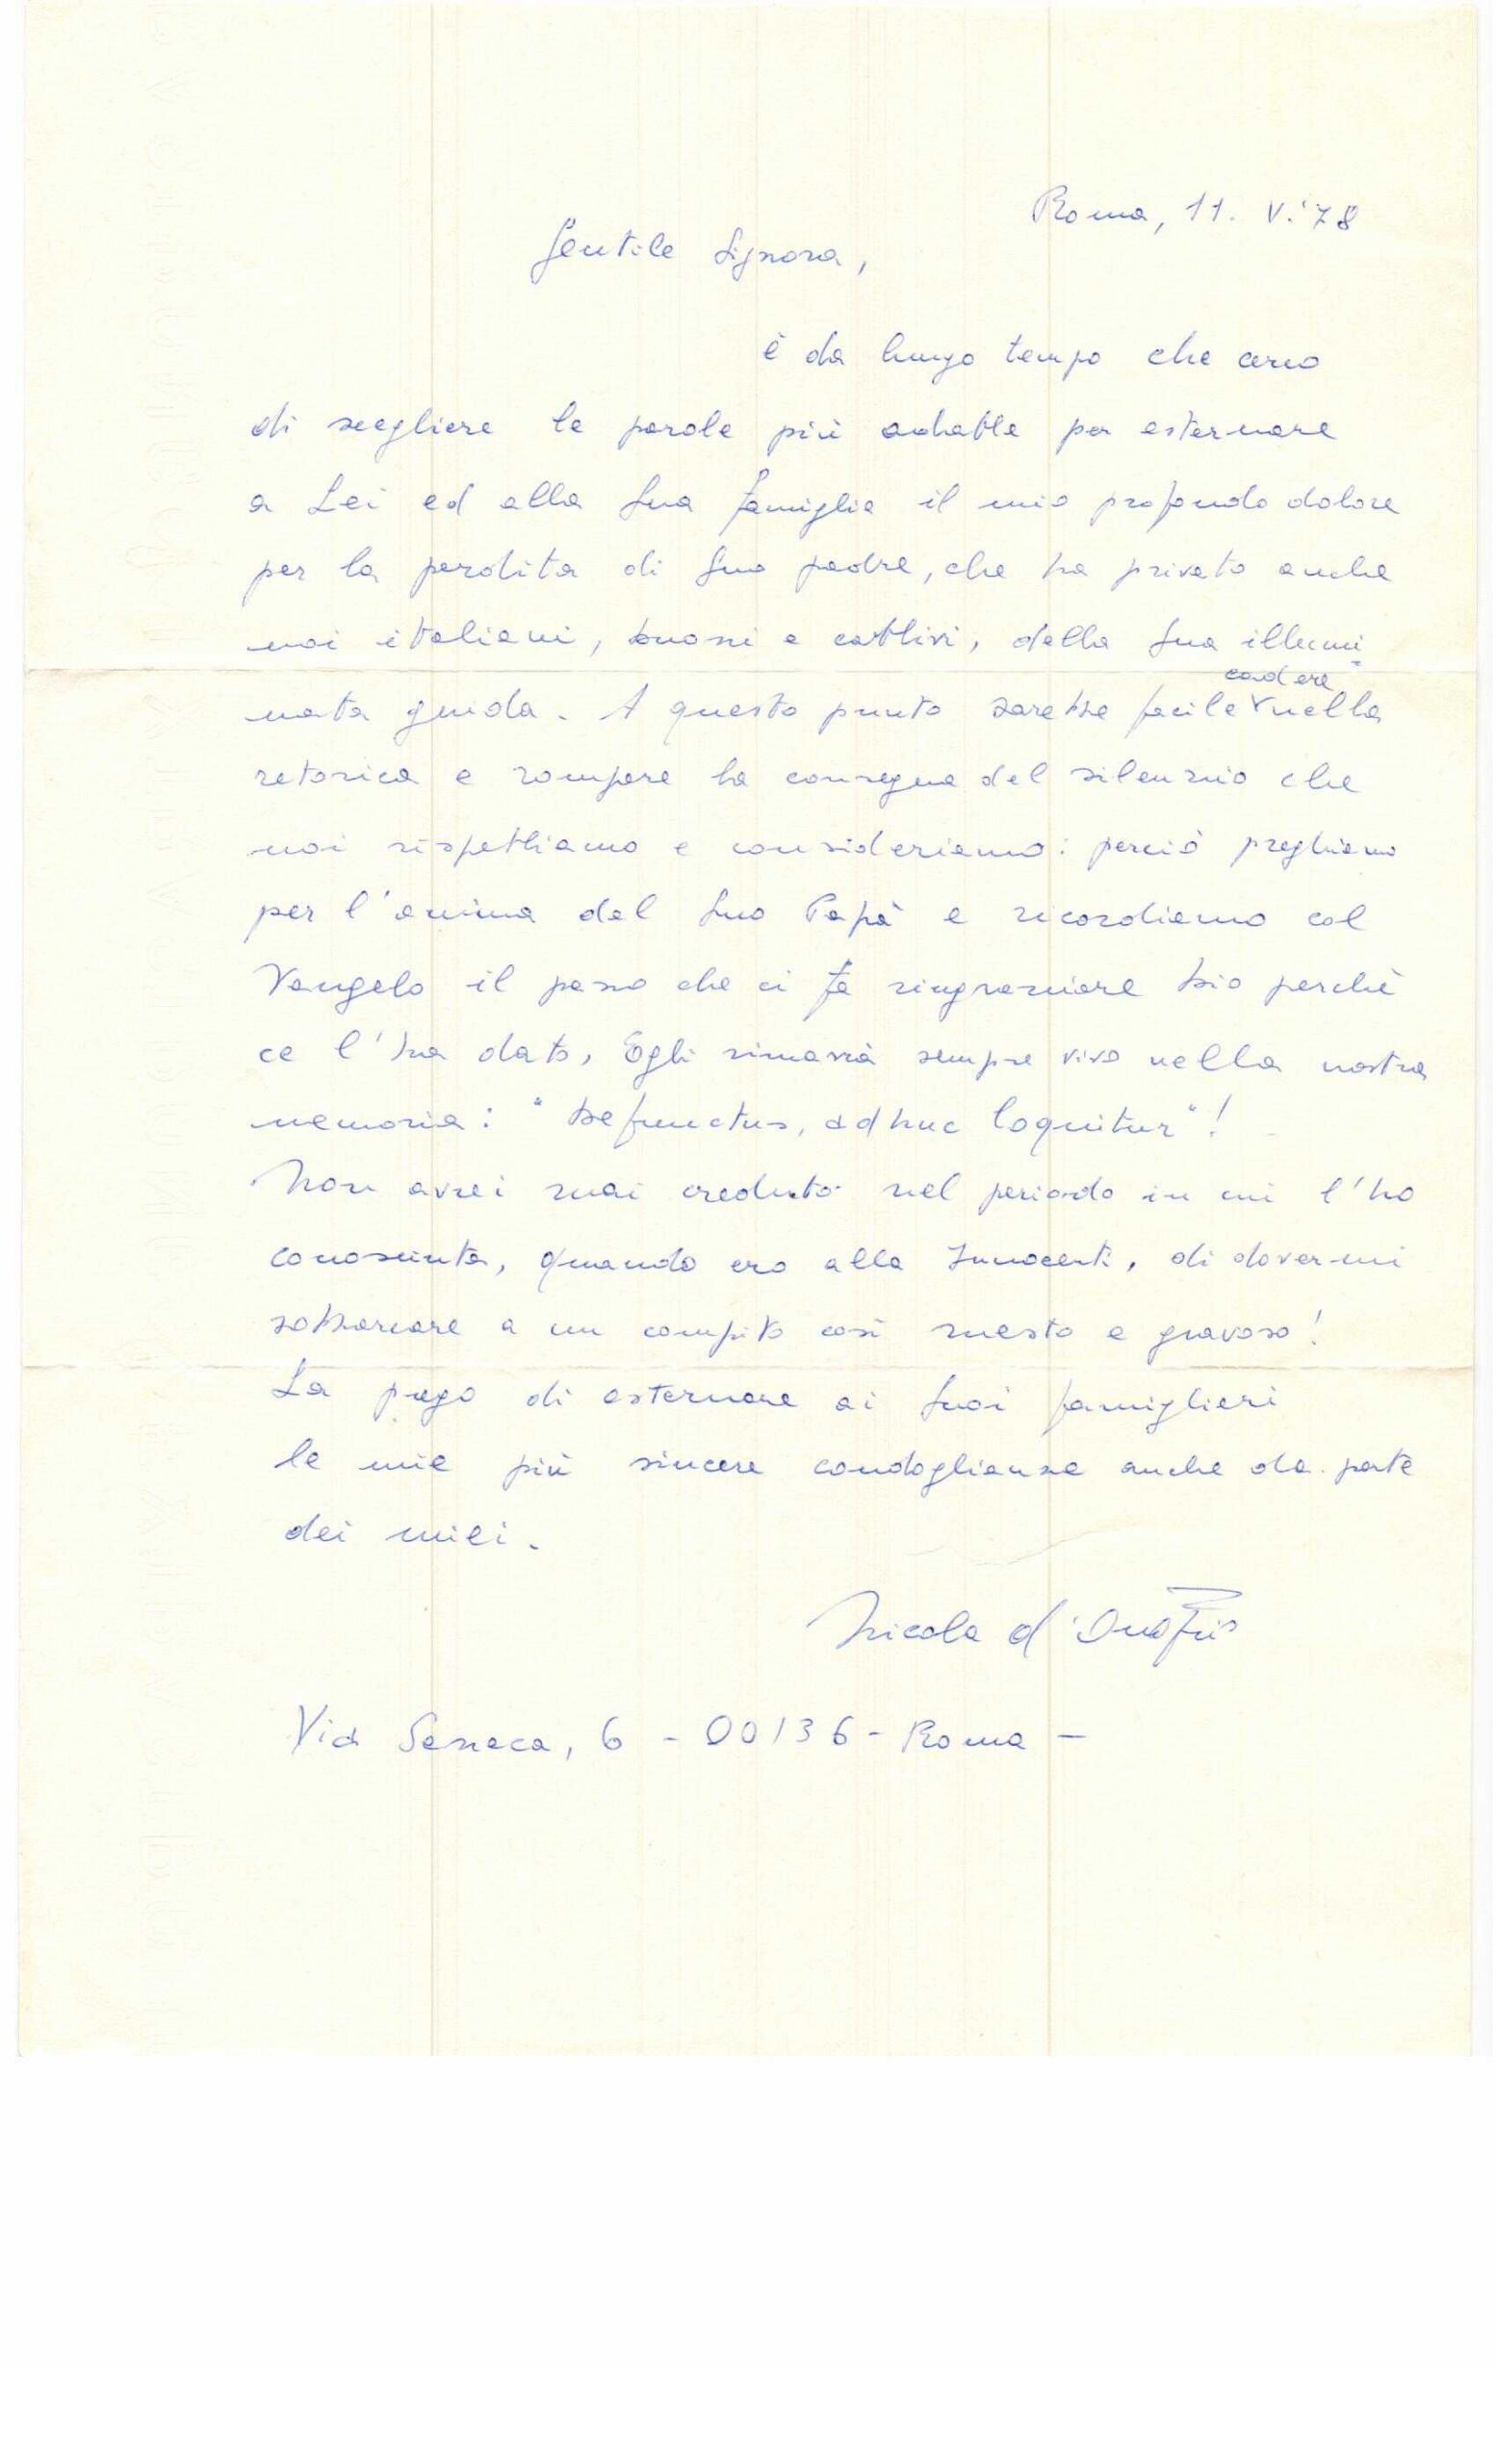 Roma, 11. V.'78
Gentile Signora,
è da lungo tempo che cerco
di scegliere le parole più adatte per esternare
a Lei ed alla Sua famiglia il mio profondo dolore
per la perdita di Suo padre, che ha privato anche
noi italiani, buoni e cattivi, della Sua illumi=
cadere
nata guida. A questo punto sarebbe facile nella
retorica e rompere la consegna del silenzio che
noi rispettiamo e consideriamo: perciò preghiamo
per l'anima del Suo Papà e ricordiamo col
Vangelo il passo che ci fa ringraziare Dio perchè
ce l'ha dato, Egli rimarrà sempre vivo nella nostra
memoria: "Defunctus, adhuc loquitur"!
Non avrei mai creduto nel periodo in cui l'ho
conosciuta, quando ero alla Innocenti, di dovermi
sobbarcare a un compito così mesto e gravoso!
La prego di esternare ai Suoi famiglieri
le mie più sincere condoglianze anche da parte
dei miei.
Nicola d'Onofrio
Via Seneca, 6 - 00136 - Roma -